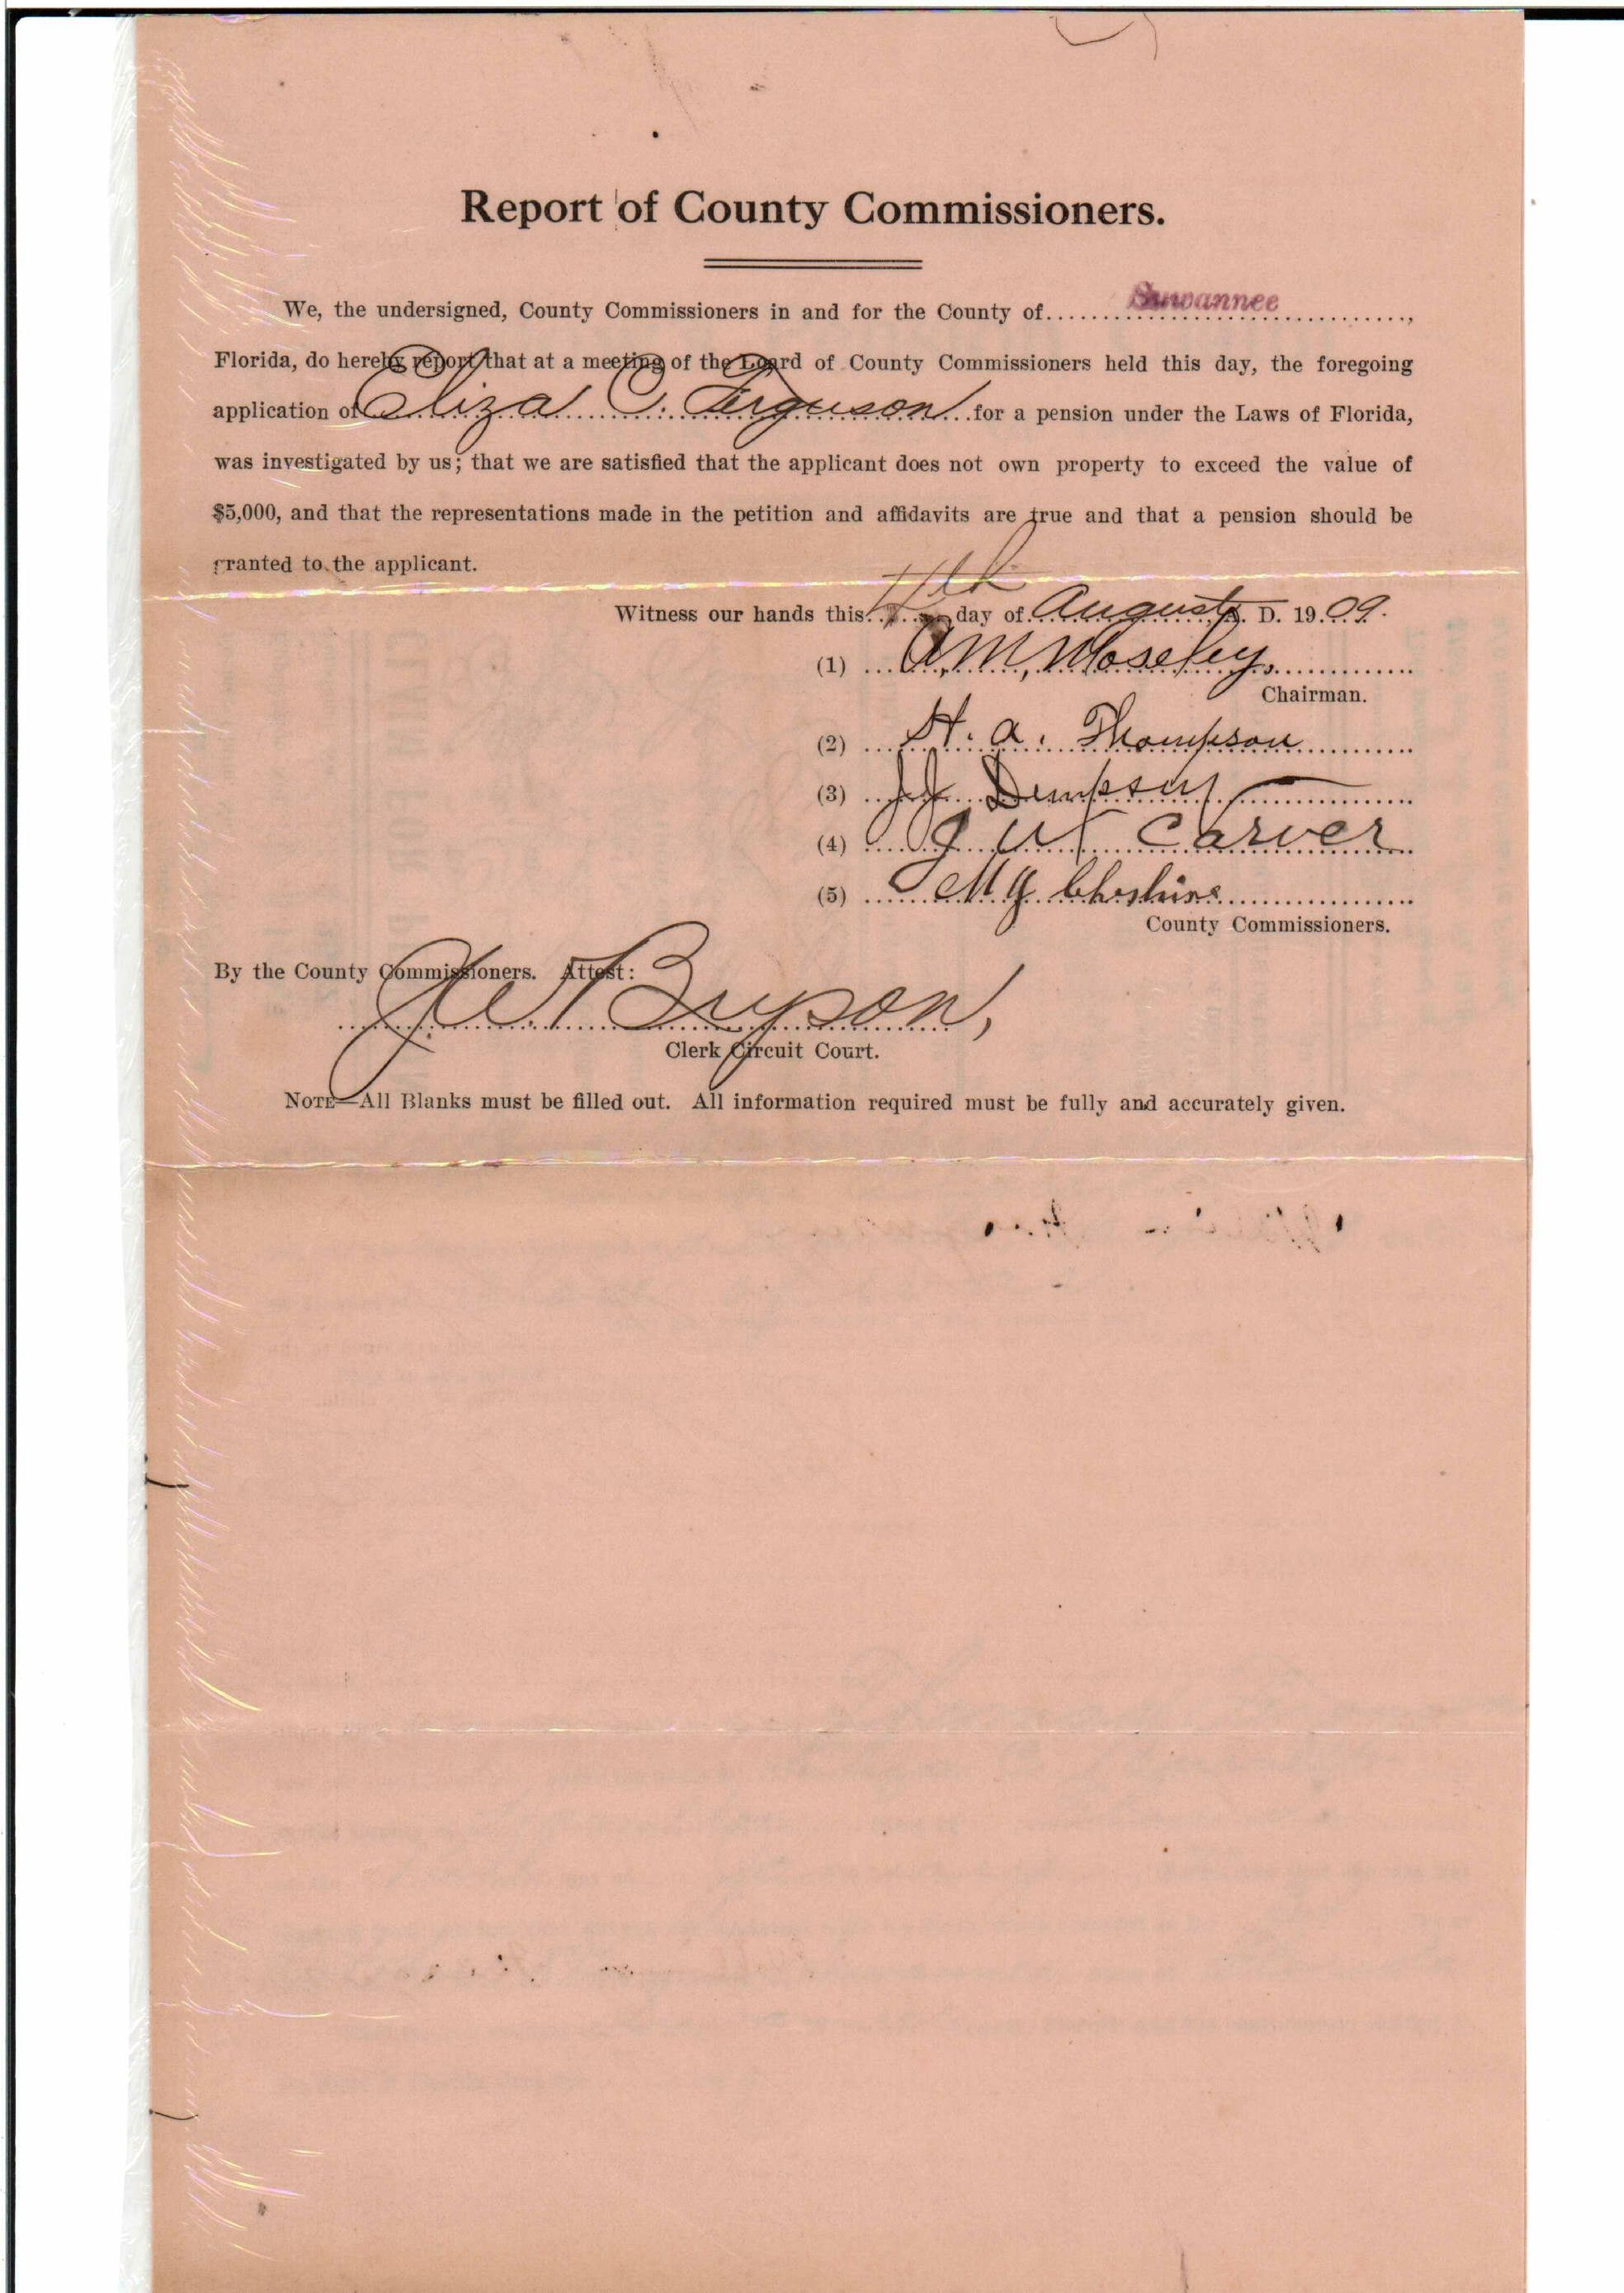 Report of County Commissioners.
We, the undersigned, County Commissioners in and for the County of Suwannee,
Florida, do hereby report that at a meeting of the Board of County Commissioners held this day, the foregoing
application of Eliza C. Ferguson for a pension under the Laws of Florida,
was investigated by us; that we are satisfied that the applicant does not own property to exceed the value of
$5,000, and that the representations made in the petition and affidavits are true and that a pension should be
granted to the applicant.
Witness our hands this day of August A. D. 1909.
(1) A. M. Moseley
Chairman.
(2) H. A. Thompson
(3) J J Dempsey
(4) J W Carver
(5)
County Commissioners.
By the County Commissioners. Attest:
J W Bryson,
Clerk Circuit Court.
NOTE—All Blanks must be filled out. All information required must be fully and accurately given.